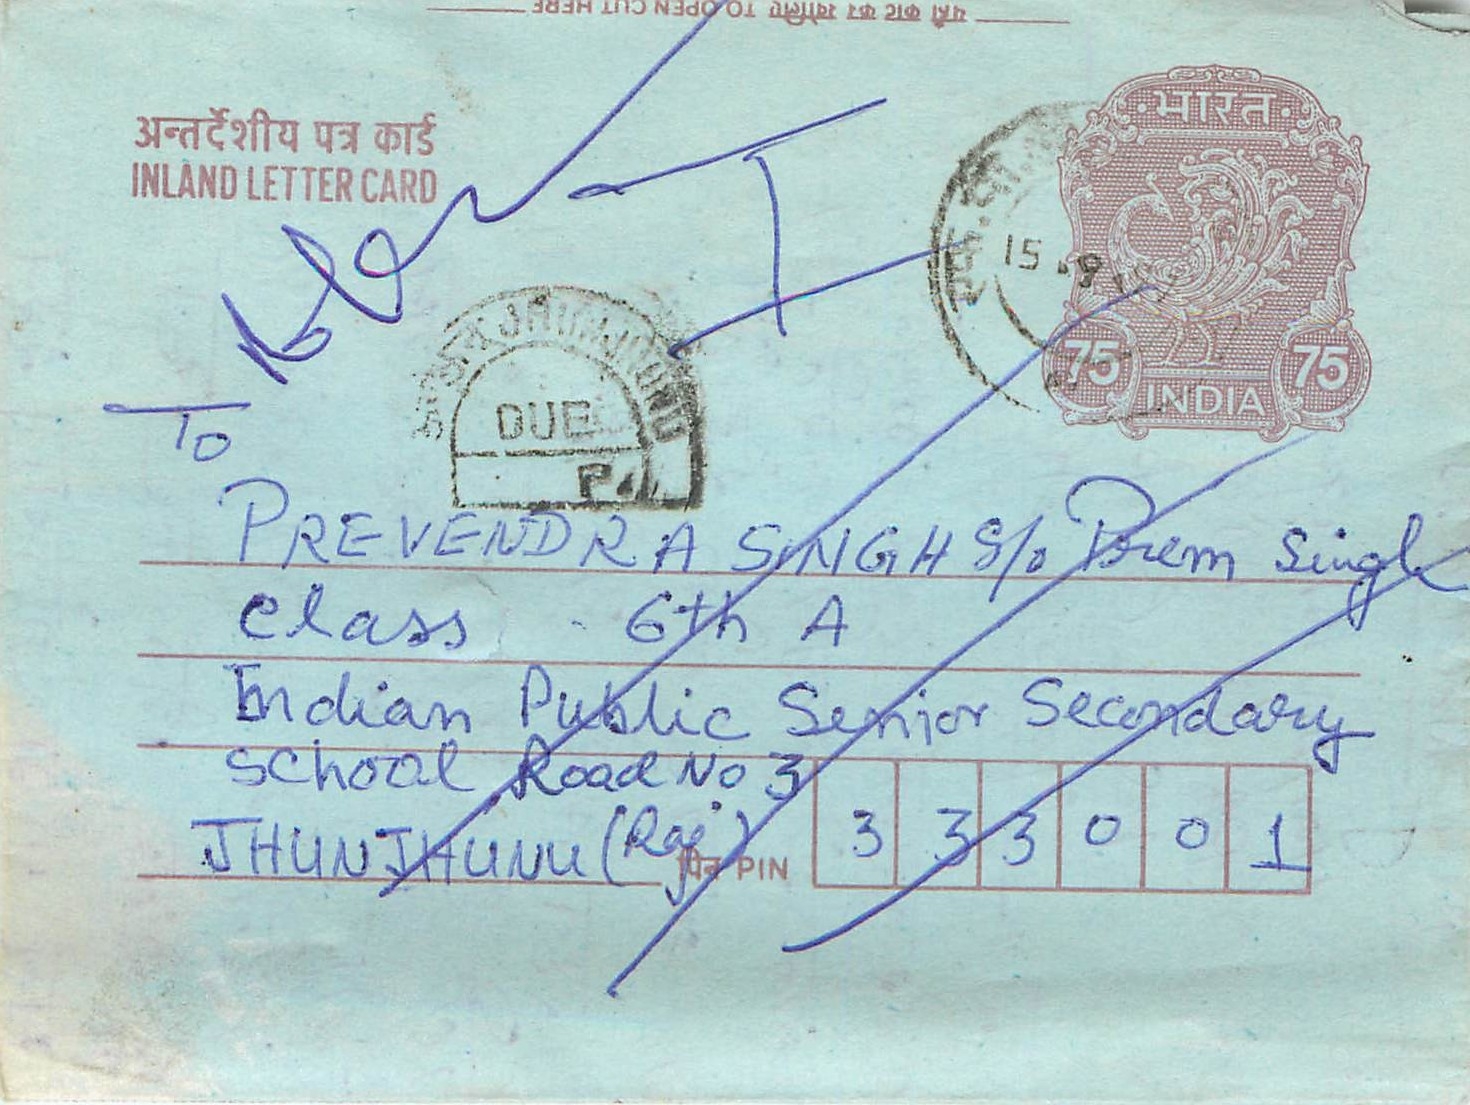 यहाँ काट कर खोलिए TO OPEN CUT HERE
अन्तर्देशीय पत्र कार्ड
INLAND LETTER CARD
भारत
15.9
75 75
INDIA
JHUNJHUNU
DUE
To
PREVENDRA SINGH S/o Prem Singh
class 6th A
Indian Public Senior Secondary
School Road No 3
JHUNJHUNU (Raj)
पिन PIN 333001